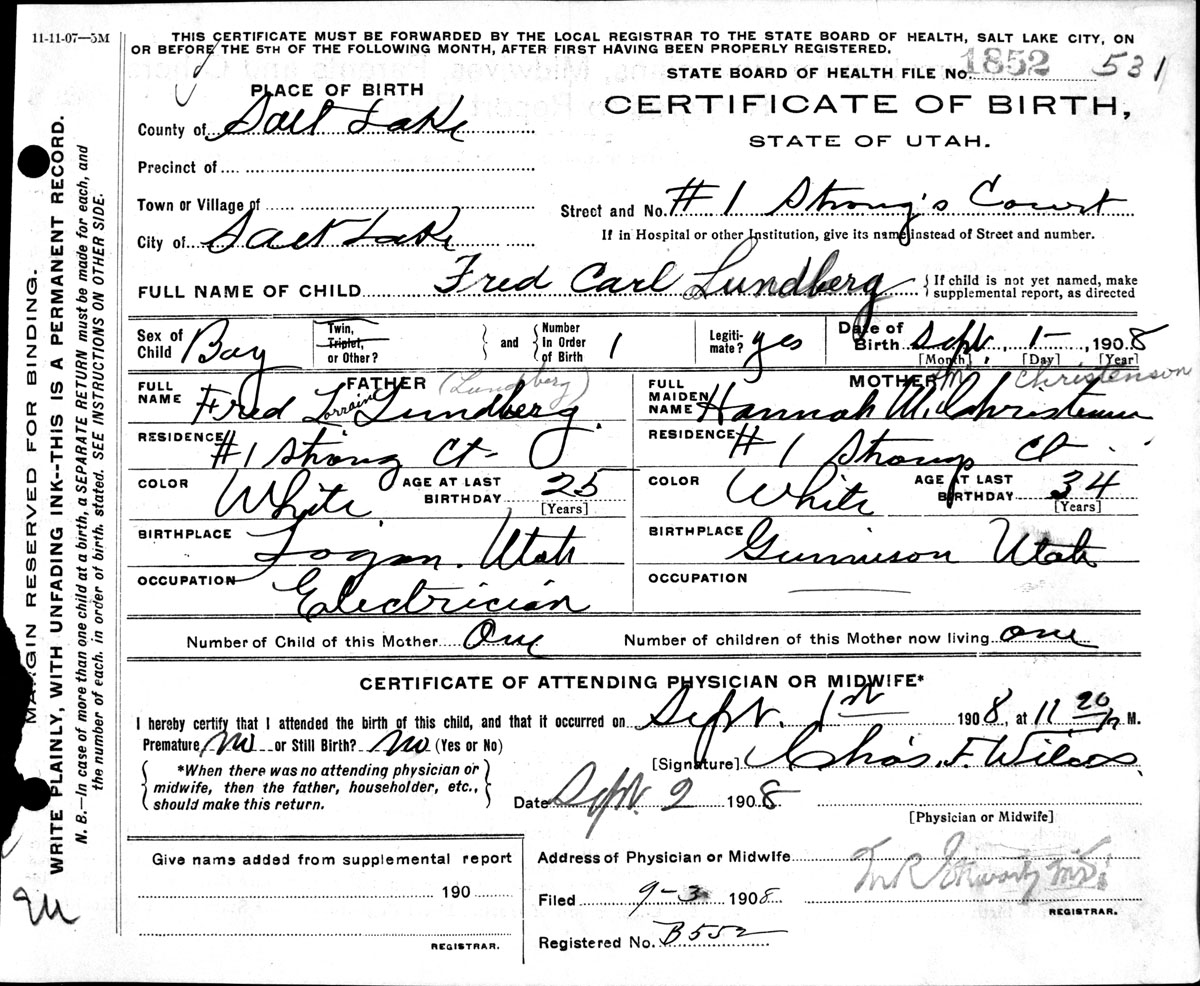 11-11-07—5M
THIS CERTIFICATE MUST BE FORWARDED BY THE LOCAL REGISTRAR TO THE STATE BOARD OF HEALTH, SALT LAKE CITY, ON
OR BEFORE THE 5TH OF THE FOLLOWING MONTH, AFTER FIRST HAVING BEEN PROPERLY REGISTERED.
STATE BOARD OF HEALTH FILE No. 1852 531
PLACE OF BIRTH
CERTIFICATE OF BIRTH,
STATE OF UTAH.
County of Salt Lake
Precinct of
Town or Village of
Street and No. #1 Strong's Court
City of Salt Lake
If in Hospital or other Institution, give its name instead of Street and number.
FULL NAME OF CHILD Fred Carl Lundberg
{If child is not yet named, make
supplemental report, as directed
Sex of Child Boy
Twin, Triplet, or Other? } and { Number In Order of Birth 1
Legitimate? yes
Date of Birth Sept. 1- 1908
[Month] [Day] [Year]
FATHER (Lundberg)
FULL NAME Fred Lorraine Lundberg.
RESIDENCE #1 Strong Ct-
COLOR White AGE AT LAST BIRTHDAY 25
[Years]
BIRTHPLACE Logan. Utah
OCCUPATION Electrician
MOTHER M Christenson
FULL MAIDEN NAME Hannah M. Christensen
RESIDENCE #1 Strongs Ct.
COLOR White AGE AT LAST BIRTHDAY 34
[Years]
BIRTHPLACE Gunnison Utah
OCCUPATION
Number of Child of this Mother One Number of children of this Mother now living one
CERTIFICATE OF ATTENDING PHYSICIAN OR MIDWIFE*
I hereby certify that I attended the birth of this child, and that it occurred on Sept. 1st 1908, at 11 20 M.
Premature No or Still Birth? No (Yes or No)
{*When there was no attending physician or
midwife, then the father, householder, etc.,
should make this return.}
[Signature] Chas. F. Wilcox
Date Sept. 2 1908
[Physician or Midwife]
Give name added from supplemental report
190
REGISTRAR.
Address of Physician or Midwife
Filed 9-3 1908
REGISTRAR.
Registered No. B552
MARGIN RESERVED FOR BINDING.
WRITE PLAINLY, WITH UNFADING INK--THIS IS A PERMANENT RECORD.
N. B.—In case of more than one child at birth, a SEPARATE RETURN must be made for each, and
the number of each. in order of birth. stated. SEE INSTRUCTIONS ON OTHER SIDE.